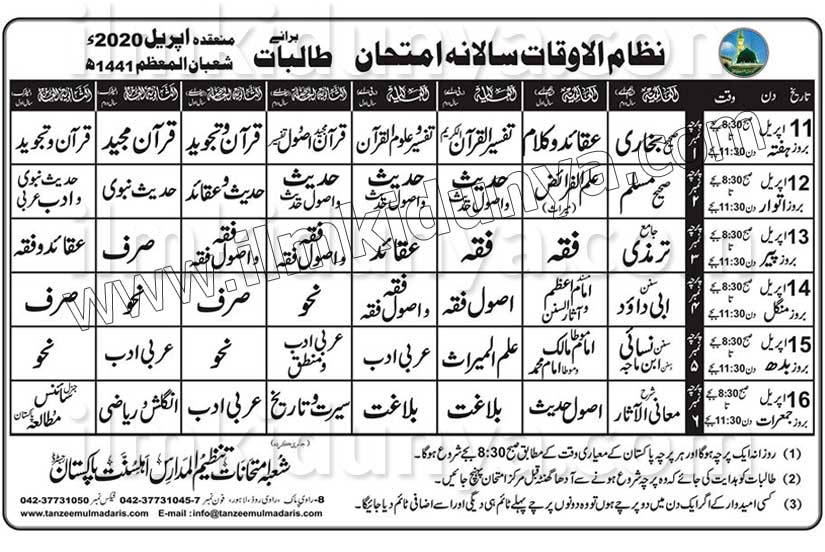 نظام الاوقات سالانہ امتحان برائے طالبات منعقدہ اپریل 2020ء
شعبان المعظم 1441ھ
تاریخ دن وقت
11 اپریل بروز ہفتہ صبح 8:30 بجے تا دن 11:30 بجے پرچہ نمبر 1 صحیح بخاری عقائد و کلام تفسیر القرآن الکریم تفسیر و علوم القرآن قرآن مجید اصول تفسیر قرآن و تجوید قرآن مجید قرآن و تجوید
12 اپریل بروز اتوار صبح 8:30 بجے تا دن 11:30 بجے پرچہ نمبر ۲ صحیح مسلم علم الفرائض (میراث) حدیث و اصول حدیث حدیث و اصول حدیث حدیث و اصول حدیث حدیث و عقائد حدیث نبوی حدیث نبوی و ادب عربی
13 اپریل بروز پیر صبح 8:30 بجے تا دن 11:30 بجے پرچہ نمبر ۳ جامع ترمذی فقہ فقہ عقائد فقہ و اصول فقہ فقہ و اصول فقہ صرف عقائد و فقہ
14 اپریل بروز منگل صبح 8:30 بجے تا دن 11:30 بجے پرچہ نمبر ۴ سنن ابی داؤد امام اعظم و آثار السنن اصول فقہ فقہ و اصول فقہ نحو صرف نحو صرف
15 اپریل بروز بدھ صبح 8:30 بجے تا دن 11:30 بجے پرچہ نمبر ۵ سنن نسائی سنن ابن ماجہ موطا امام مالک و موطا امام محمد علم المیراث عربی ادب عربی ادب و منطق نحو عربی ادب نحو
16 اپریل بروز جمعرات صبح 8:30 بجے تا دن 11:30 بجے پرچہ نمبر ۶ شرح معانی الآثار اصول حدیث بلاغت بلاغت سیرت و تاریخ عربی ادب انگلش و ریاضی جنرل سائنس مطالعہ پاکستان
(1) روزانہ ایک پرچہ ہوگا اور ہر پرچہ پاکستان کے معیاری وقت کے مطابق صبح 8:30 بجے شروع ہوگا۔
(2) طالبات کو ہدایت کی جائے کہ وہ پرچہ شروع ہونے سے آدھا گھنٹہ قبل مرکز امتحان پہنچ جائیں۔
(3) کسی امیدوار کے اگر ایک دن میں دو پرچے ہوں تو وہ دونوں پرچے پہلے ٹائم ہی دے گا اور اسے اضافی ٹائم دیا جائیگا۔
(جاری کردہ)
شعبہ امتحانات تنظیم المدارس اہلسنت پاکستان
8-راوی پارک، راوی روڈ، لاہور، فون نمبر 7-042-37731045 فیکس نمبر 042-37731050
www.tanzeemulmadaris.com E-mail : info@tanzeemulmadaris.com
www.ilmkidunya.com
ilmkidunya.com